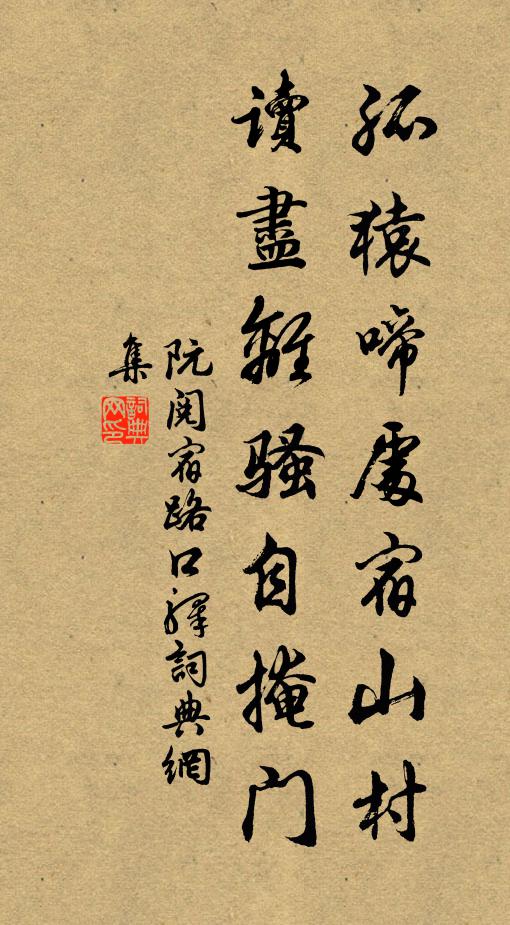 孤猿啼處宿山村
讀盡離騷自掩門
阮閱宿路口驛詞典網
集
詞典網印